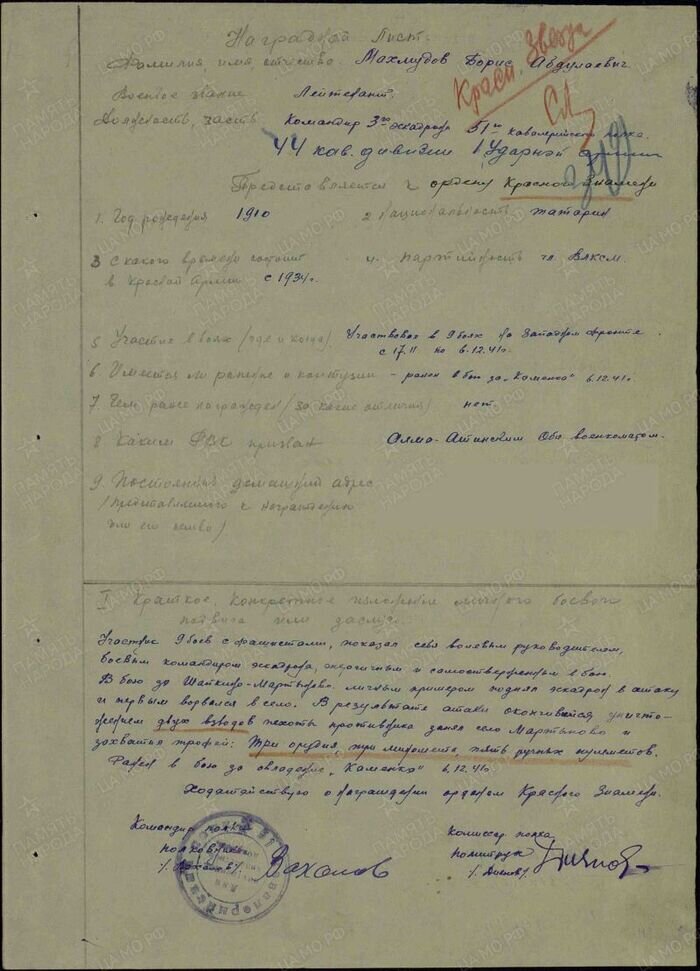 Наградной Лист.
Красн. Звезда
Фамилия, имя, отчество Махмудов Борис Абдулаевич
Военное звание Лейтенант
Должность, часть Командир 3го эскадрона 51го кавалерийского полка.
44 кав. дивизии 1 Ударной армии
Представляется к ордену Красного Знамени
1. Год рождения 1910 2 национальность татарин
3 С какого времени состоит
в красной армии с 1934г. 4. партийность чл. ВЛКСМ.
5 Участие в боях (где и когда). Участвовал в 9 боях на Западном фронте.
с 17.11 по 6.12.41г.
6 Имеются ли ранения и контузии - ранен в бою за "Каменка" 6.12.41г.
7 Чем ранее награжден (за какие отличия) нет.
8 Каким РВК призван Алма-Атинским Обл военкоматом.
9 Постоянный домашний адрес
(представляемого к награждению
или его семьи)
I Краткое, конкретное изложение личного боевого
подвига или заслуг.
Участник 9 боев с фашистами, показал себя волевым руководителем,
боевым командиром эскадрона, энергичным и самоотверженным в бою.
В бою за Шапкино-Мартыново личным примером поднял эскадрон в атаку
и первым ворвался в село. В результате атаки окончившейся уничто-
жением двух взводов пехоты противника занял село Мартыново и
захватил трофеи: Три орудия, три миномета, пять ручных пулеметов.
Ранен в бою за овладение "Каменка" 6.12.41г.
Ходатайствую о награждении орденом Красного Знамени.
Командир полка
полковник
Комиссар полка
политрук